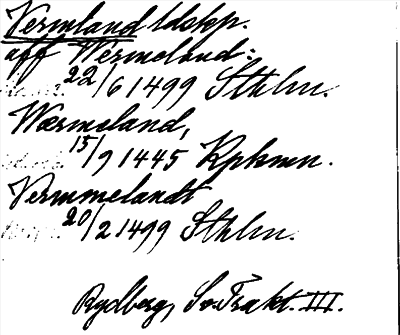 Vermland ldskp.
aff Wermeland:
22/6 1499 Sthlm.
Wærmeland,
15/9 1445 Kpkmn.
Vermmelandt
20/2 1499 Sthlm.
Rydberg, Sv. Trakt. III.